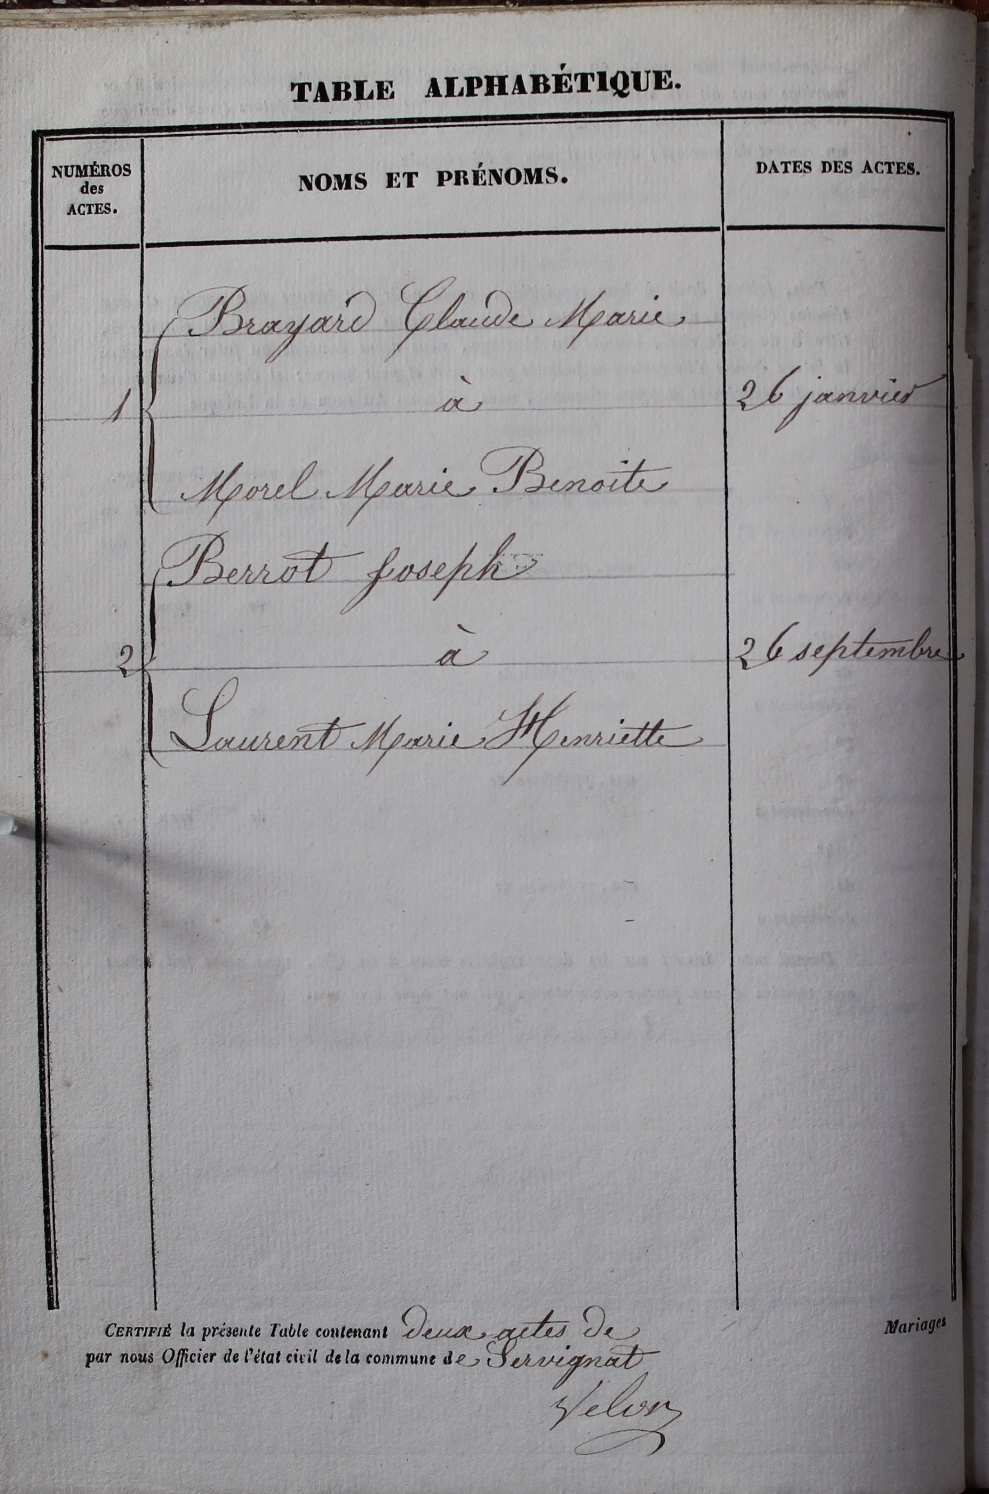 TABLE ALPHABÉTIQUE.
NUMÉROS
des
ACTES.
NOMS ET PRÉNOMS.
DATES DES ACTES.
Brayard Claude Marie
1 à 26 janvier
Morel Marie Benoite
Berrot Joseph
2 à 26 septembre
Laurent Marie Henriette
CERTIFIÉ la présente Table contenant deux actes de Mariages
par nous Officier de l'état civil de la commune de Servignat